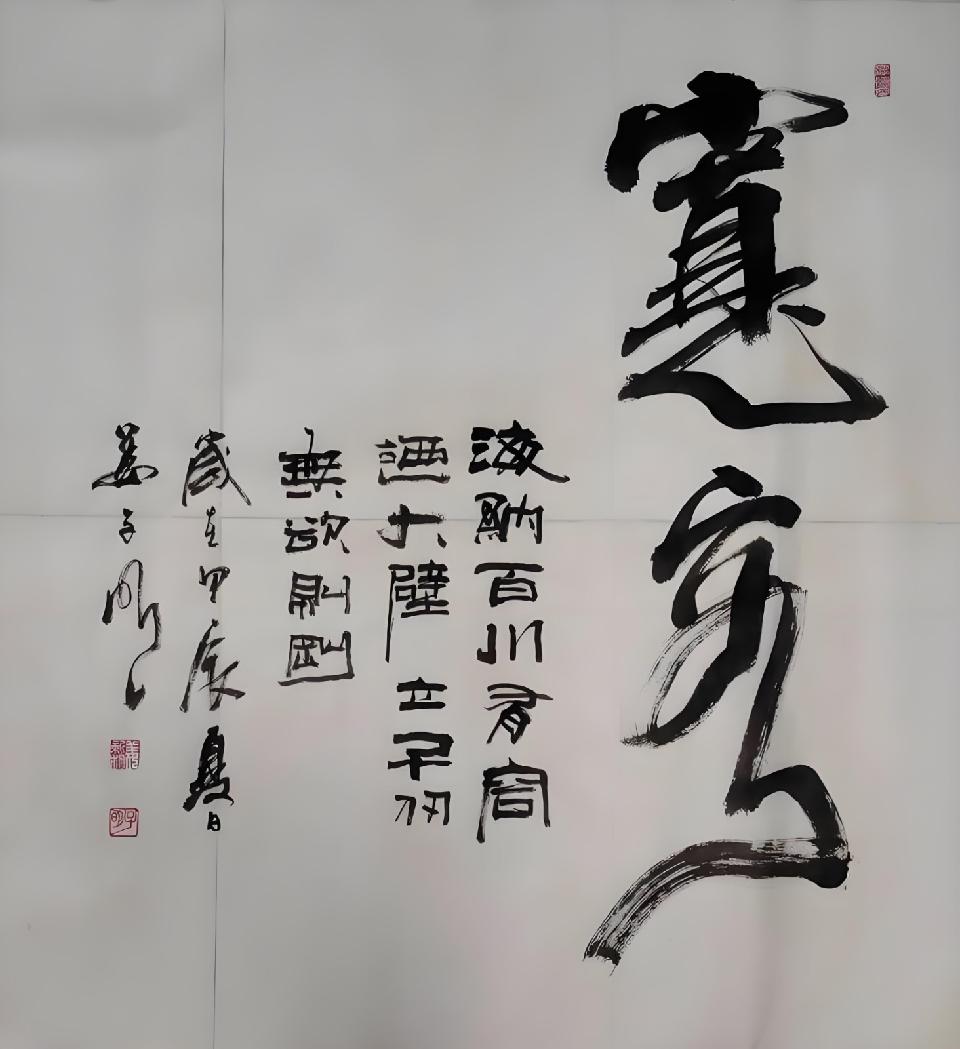 寬容
海納百川有容
迺大壁立千仞
無欲則剛
歲在甲辰夏日
姜子明